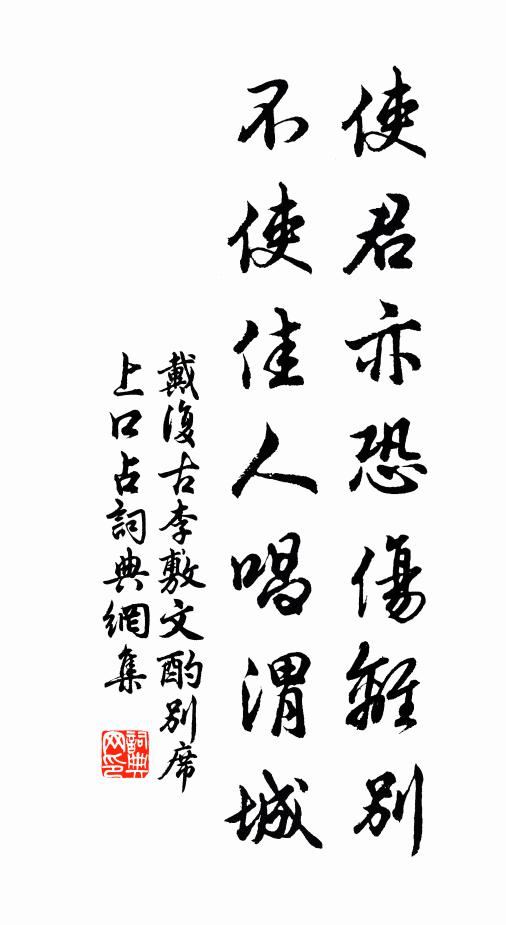 使君亦恐傷離別
不使佳人唱渭城
戴復古李敷文酌別席
上口占詞典網集
詞典網印